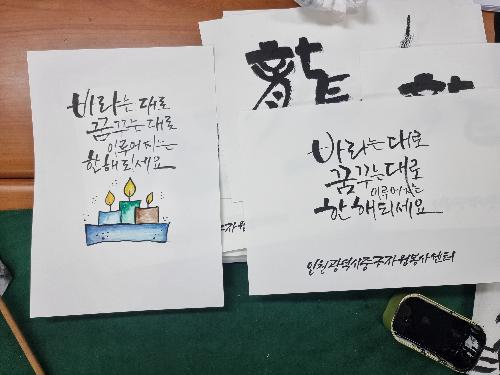 바라는 대로
꿈꾸는 대로
이루어지는
한해되세요
龍
바라는 대로
꿈꾸는 대로
이루어지는
한해되세요
인천광역시중구자원봉사센터